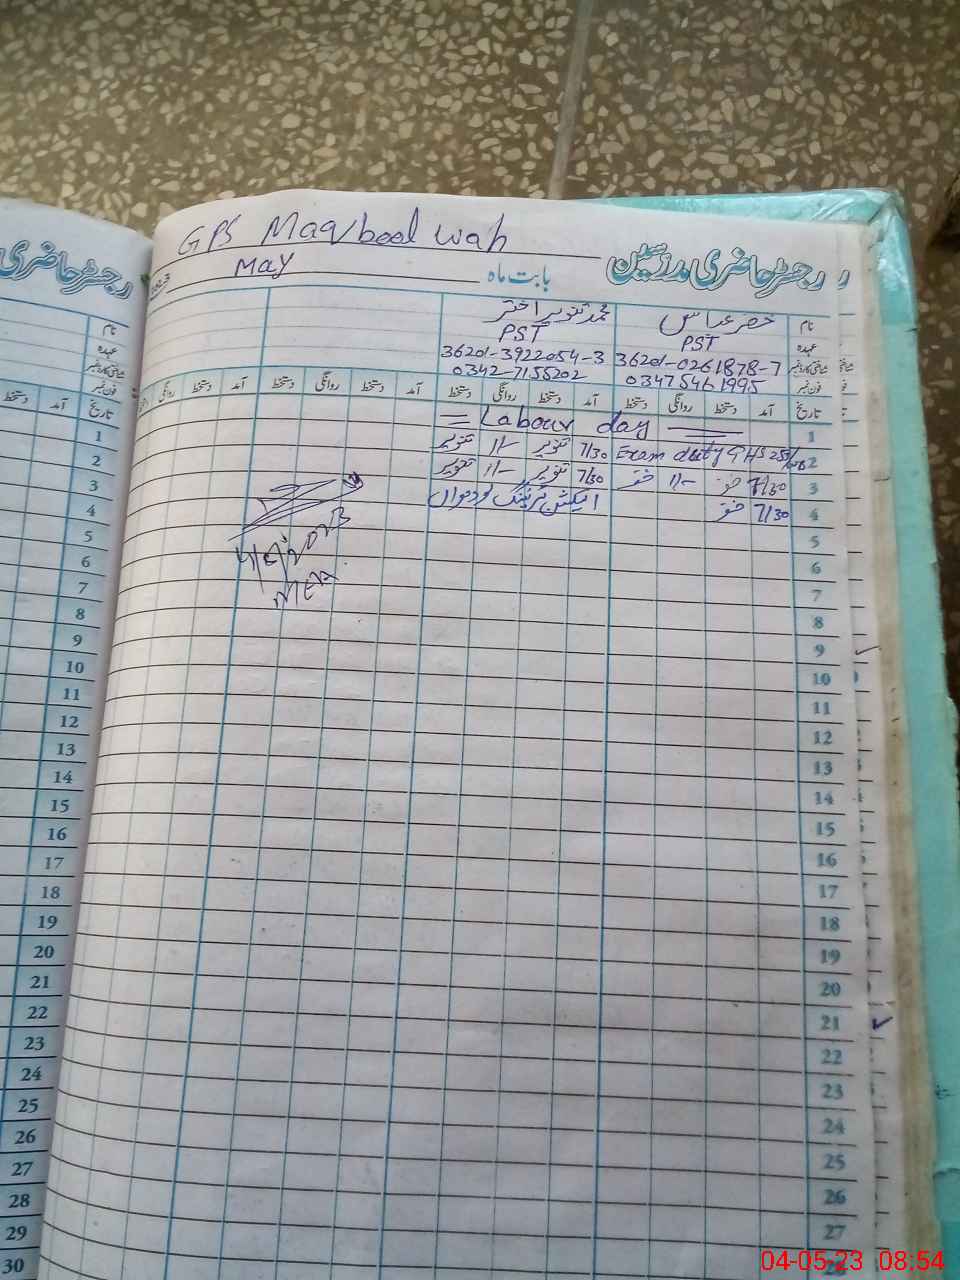 GPS Maqbool wah
رجسٹر حاضری مدرسین
بابت ماہ May
نام خضر عباس محمد تنویر اختر
عہدہ PST PST
شناختی کارڈ نمبر 36201-0261878-7 36201-3922054-3
فون نمبر 03475461995 0342-7155202
تاریخ آمد دستخط روانگی دستخط آمد دستخط روانگی دستخط آمد دستخط روانگی دستخط آمد دستخط روانگی
1 = Labour day =
2 Exam duty GHS 7/30 تنویر 1/- تنویر
3 7/30 خضر 1/- خضر 7/30 تنویر 1/- تنویر
4 7/30 خضر الیکشن ٹریننگ لودھراں
5
6
7
8
9
10
11
12
13
14
15
16
17
18
19
20
21
22
23
24
25
26
27
28
4/5/2023
MEA
رجسٹر حاضری
نام
عہدہ
شناختی کارڈ نمبر
فون نمبر
تاریخ آمد دستخط
1
2
3
4
5
6
7
8
9
10
11
12
13
14
15
16
17
18
19
20
21
22
23
24
25
26
27
28
29
30
04-05-23 08:54